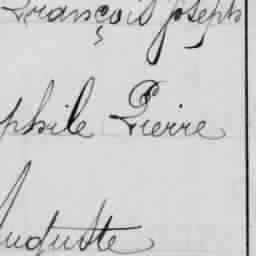 François Joseph
phile Pierre
Auguste